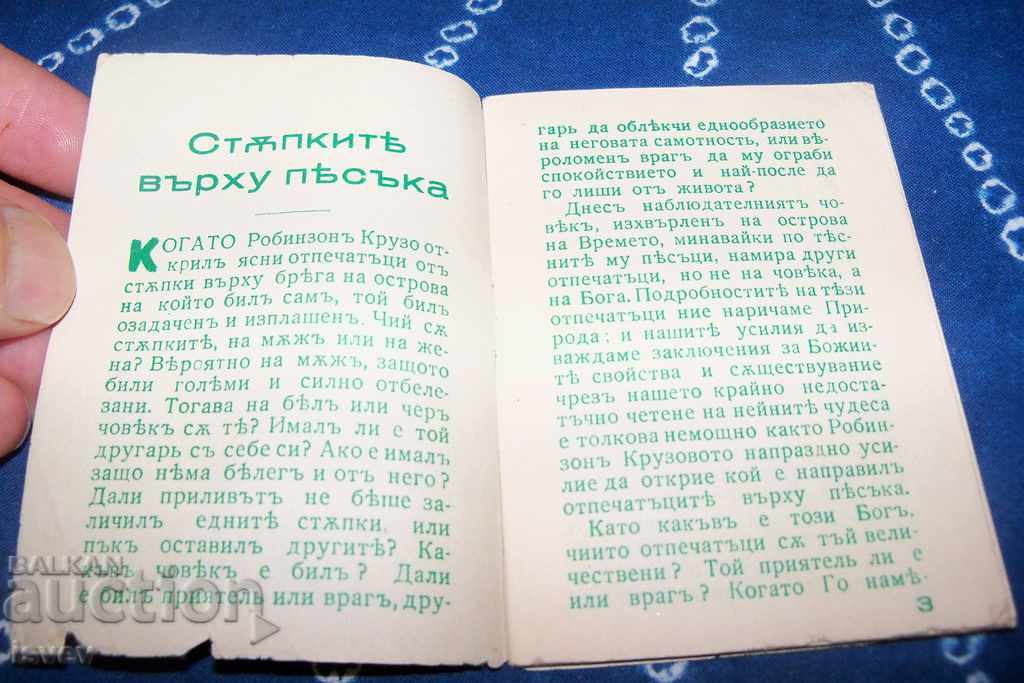 Стѫпкитѣ
върху пѣсъка
КОГАТО Робинзонъ Крузо от-
крилъ ясни отпечатъци отъ
стѫпки върху брѣга на острова
на който билъ самъ, той билъ
озадаченъ и изплашенъ. Чий сѫ
стѫпкитѣ, на мѫжъ или на же-
на? Вѣроятно на мѫжъ, защото
били голѣми и силно отбеле-
зани. Тогава на бѣлъ или черъ
човѣкъ сѫ тѣ? Ималъ ли е той
другарь съ себе си? Ако е ималъ
защо нѣма бѣлегъ и отъ него?
Дали приливътъ не бѣше за-
личилъ еднитѣ стѫпки, или
пъкъ оставилъ другитѣ? Ка-
къвъ човѣкъ е билъ? Дали
е билъ приятель или врагъ, дру-
гарь да облѣкчи еднообразието
на неговата самотность, или вѣ-
роломенъ врагъ да му ограби
спокойствието и най-после да
го лиши отъ живота?
Днесъ наблюдателниятъ чо-
вѣкъ, изхвърленъ на острова
на Времето, минавайки по тѣс-
нитѣ му пѣсъци, намира други
отпечатъци, но не на човѣка, а
на Бога. Подробноститѣ на тѣзи
отпечатъци ние наричаме При-
рода; и нашитѣ усилия да из-
важдаме заключения за Божии-
тѣ свойства и сѫществуване
чрезъ нашето крайно недоста-
тъчно четене на нейнитѣ чудеса
е толкова немощно както Робин-
зонъ Крузовото напраздно уси-
лие да открие кой е направилъ
отпечатъцитѣ върху пѣсъка.
Като какъвъ е този Богъ,
чиито отпечатъци сѫ тъй вели-
чествени? Той приятель ли е
или врагъ? Когато Го намѣ-
3
BALKAN
auction
isvev